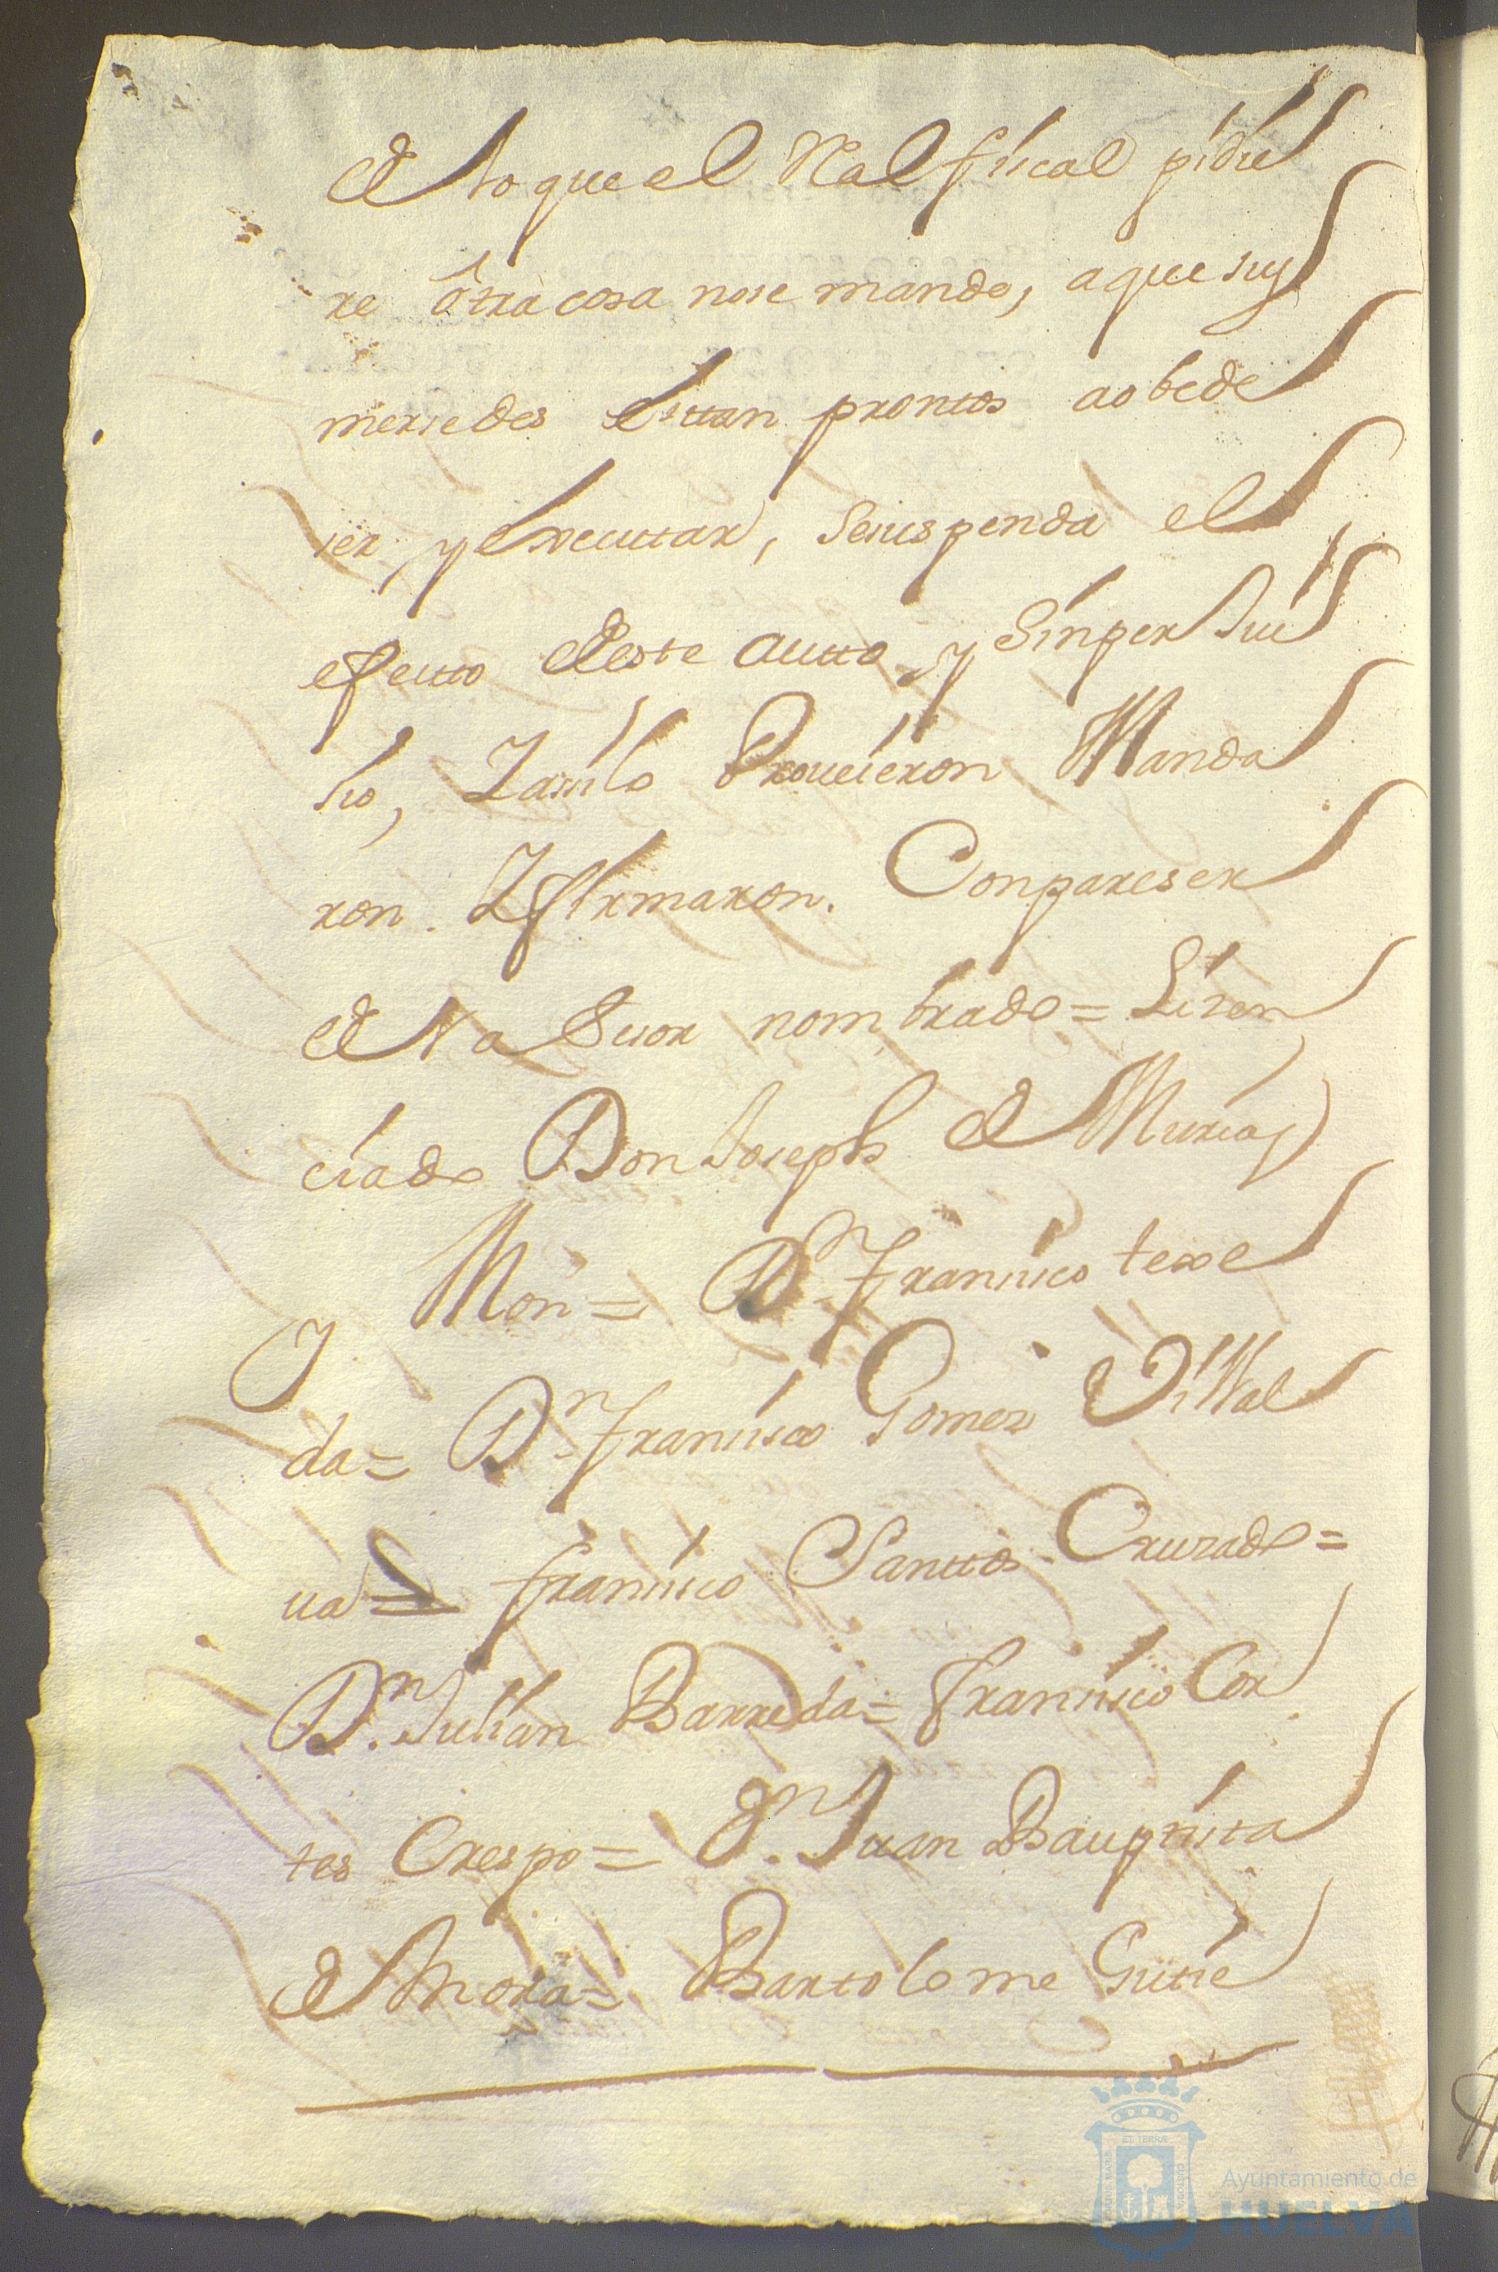 de lo que el Real fiscal pidie
re ôtra cosa nose mande, aque sus
mersedes estan prontos aobede
ser, y executar, sesuspenda el
efecto deste autto, y sinper Jui
sio, Yasilo Proueieron Manda
ron. Yfirmaron. Conpareser
de la sesor nombrado = Lizen
ciado Don Joseph de Murias
Y Mon = Dn. Fransisco texe
da = Dn. Fransisco Gomez de Villal
ua = fransisco Santtos Cruzado =
Dn. Julian Barreda = fransisco Cor
tes Crespo = Dn. Juan Bauptista
de Mora = Bartolome Gutie
Ayuntamiento de
HUELVA